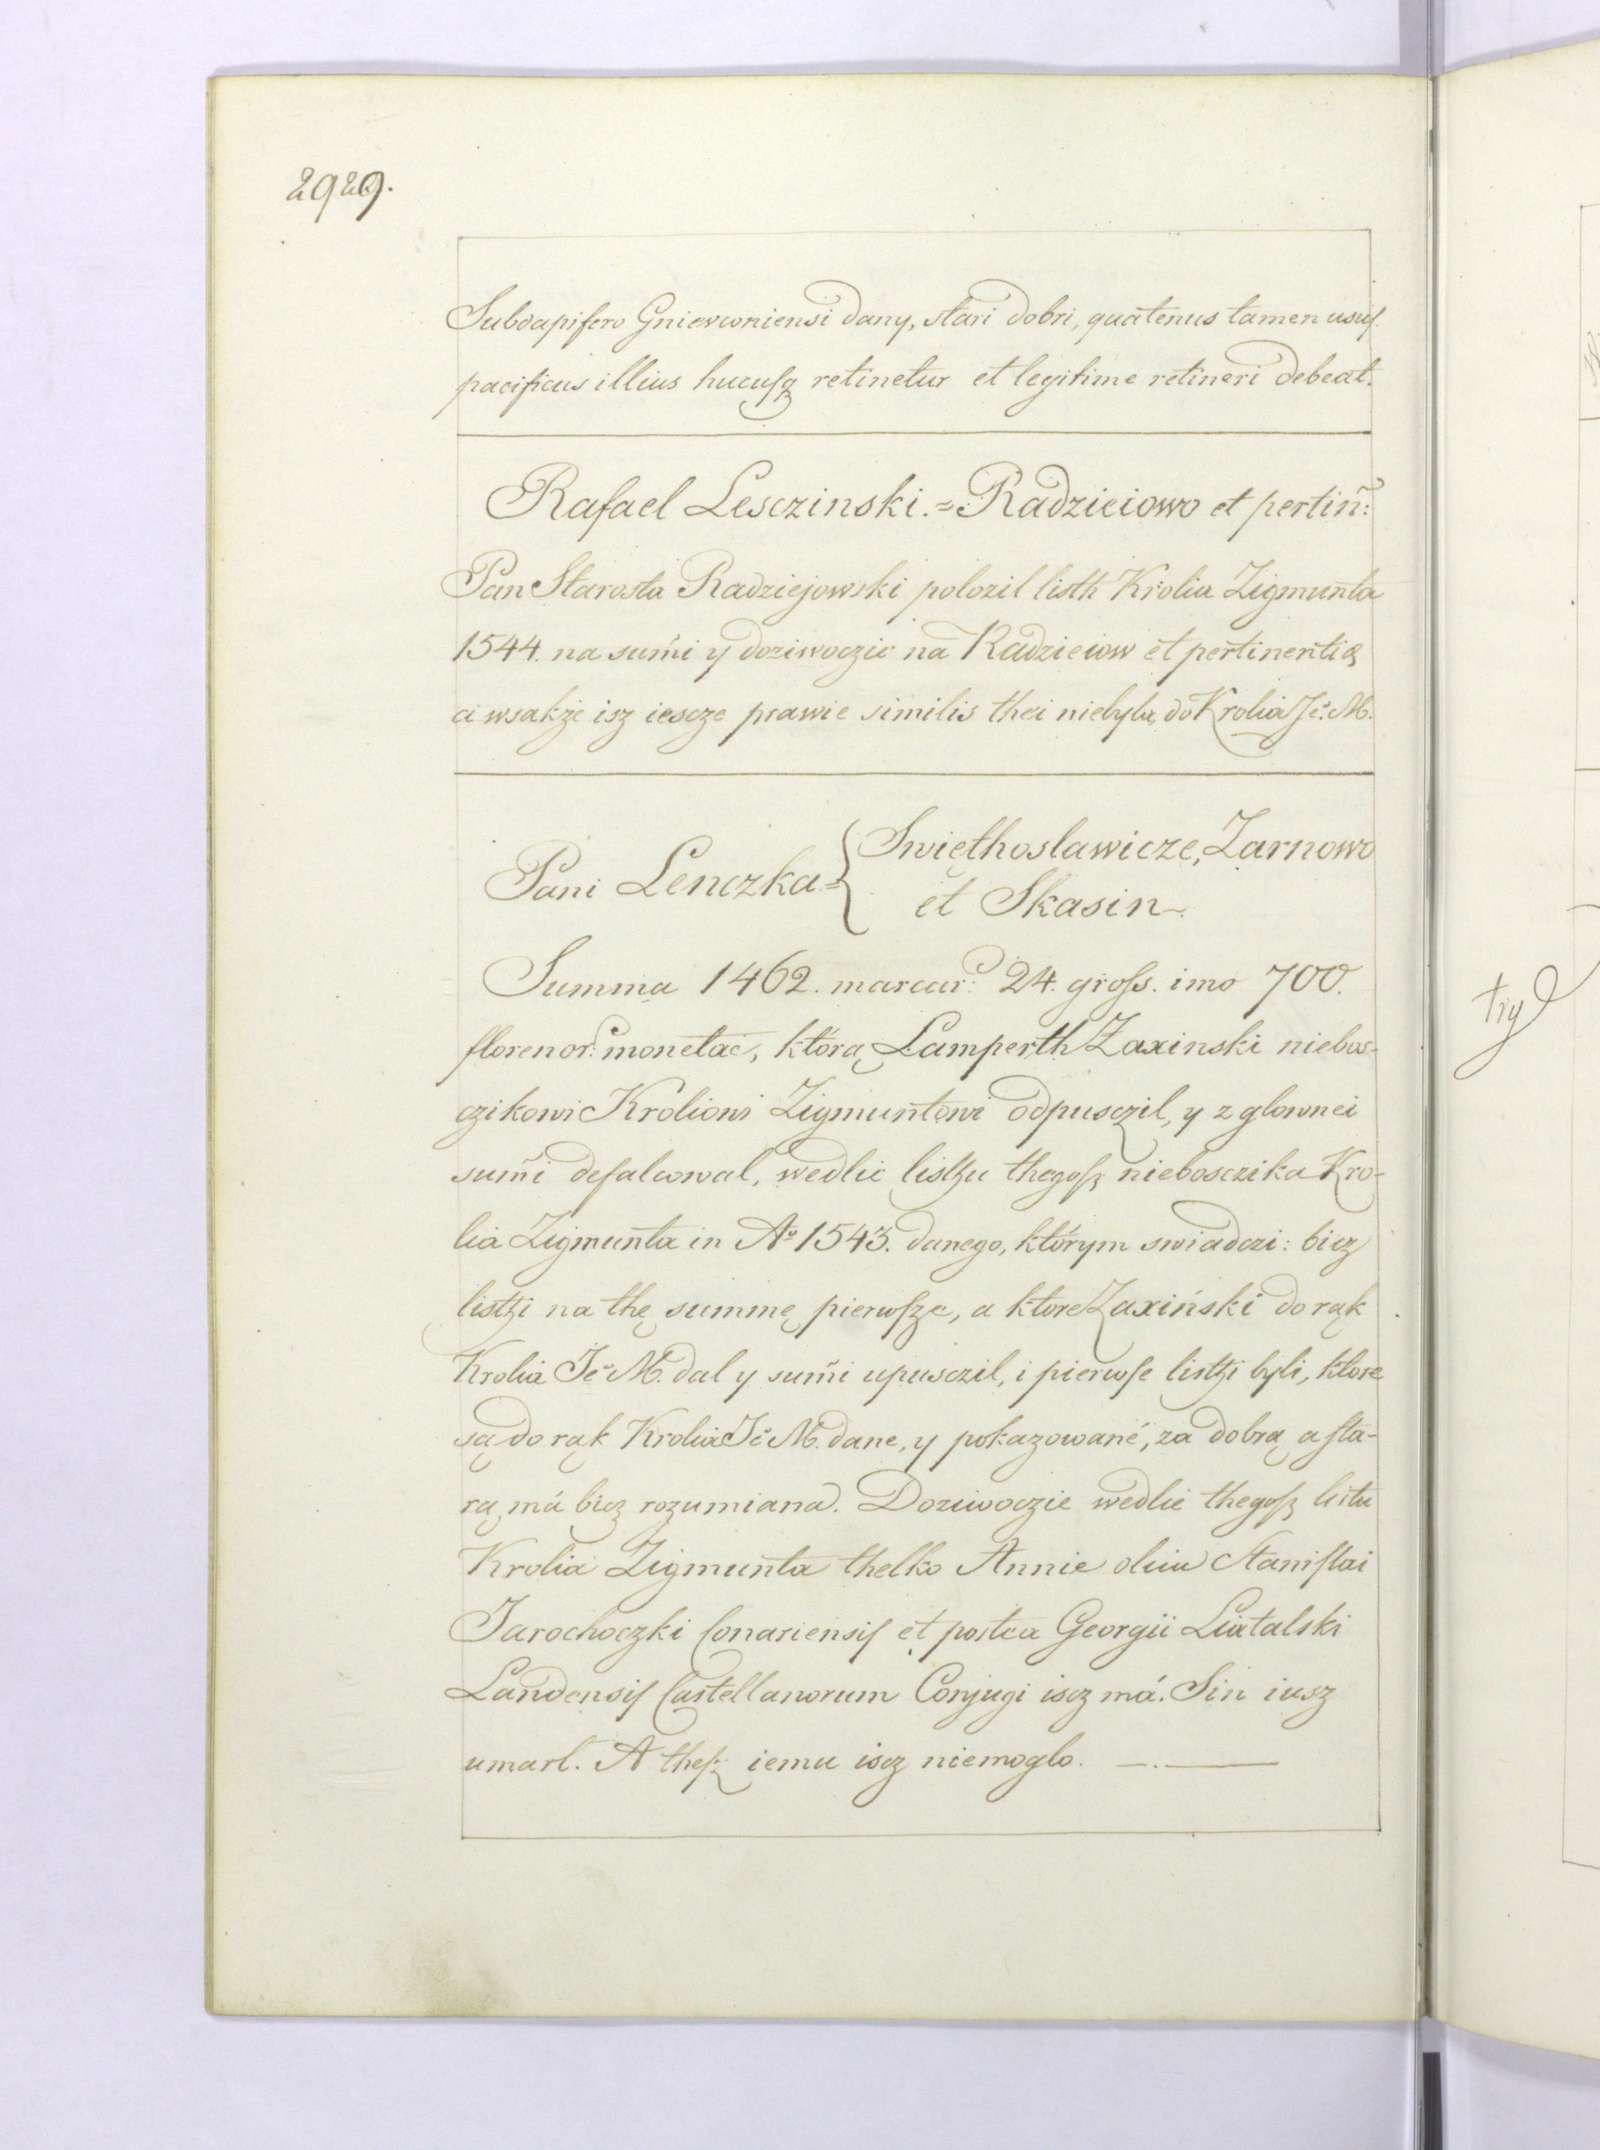 2929.
Subdapifero Gniewconiensi dany, stari dobri, quatenus tamen usus
pacificus illius hucusq retinetur et legitime retineri debeat.
Rafael Lesczinski.=Radzieiowo et pertiñ:
Pan Starosta Radziejowski polozil listh Krolia Zigmunta
1544. na sumḿi y doziwoczie na Radzieiow et pertinentia
a wsakże isz iescze prawie similis thei niebyla do Krolia Je: M.
Pani Lenczka= { Swięthoslawicze, Zarnowo
et Skasin.
Summa 1462. marcar: 24. gross. imo 700.
florenor: monetae, którą Lamperth Żaxinski niebos-
czikowi Kroliowi Zigmuntowi odpusczil, y z glownei
sum̃i defalcowal, wedlie listhu thegosz nieboscziką Kro-
lia Zigmunta in Aº 1543. danego, którym swiadczi: bicz
listhi na thę summę pierwsze, a ktore Żaxiński do rąk
Krolia Je M. dal y sum̃i upusczil, i pierwse listhi byli, ktore
są do rąk Krolia Je M. dane, y pokazowané, za dobrą a sta-
rą má bicz rozumiana. Doziwoczie wedlie thegosz listu
Krolia Zigmunta thelko Annie olim Stanislai
Jarochoczki Conariensis et postea Georgii Liatalski
Landensis Castellanorum Conjugi iscz má. Sin iusz
umarl. A thesz iemu iscz niemoglo.
try